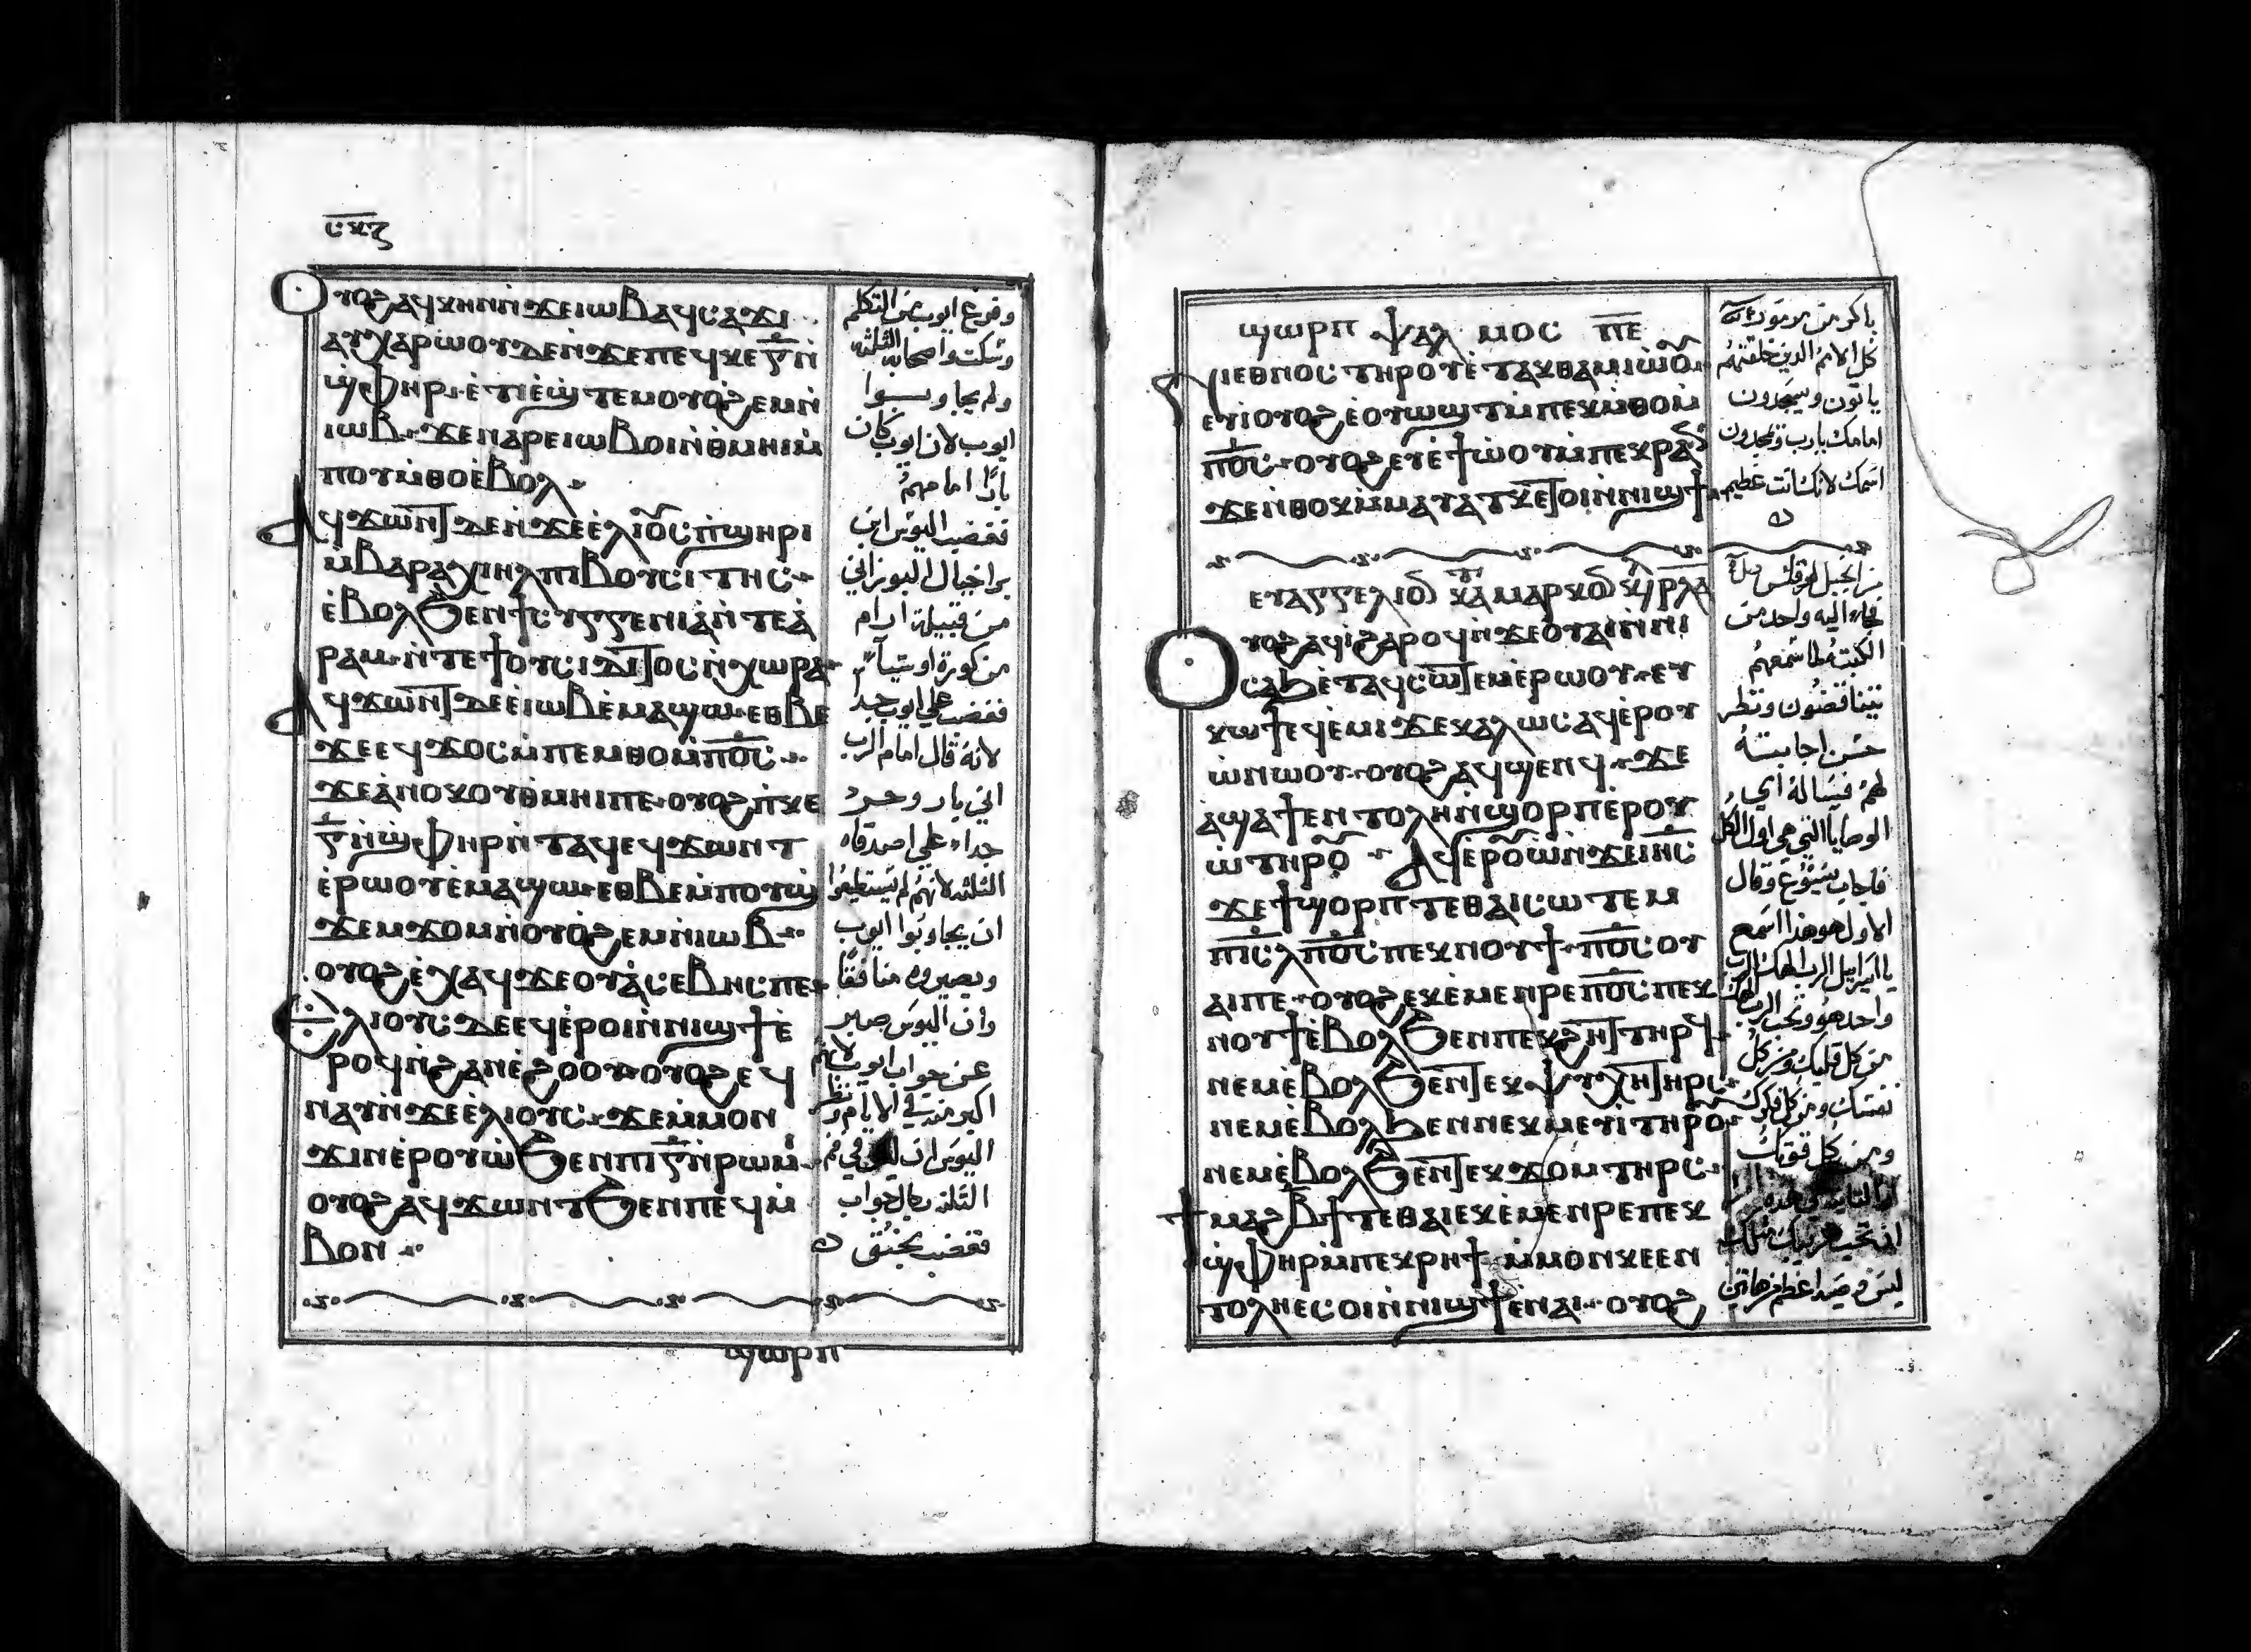 ⲥⲕⲍ
ⲟⲩⲟϩ ⲁϥⲕⲏⲛ ⲛ̀ϫⲉ ⲓⲱⲃ ⲁϥⲥⲁϫⲓ
ⲁⲩⲭⲁⲣⲱⲟⲩ ⲇⲉ ⲛ̀ϫⲉ ⲡⲉϥⲕⲉ ⲅ̅ ⲛ̀
ϣ̀ⲫⲏⲣ ⲉ̀ⲧⲓ ⲉ̀ϣⲧⲉⲙ ⲟⲩⲟϩⲉⲙ ⲛ̀
ⲓⲱⲃ ϫⲉ ⲛⲁⲣⲉ ⲓⲱⲃ ⲟⲓ ⲛ̀ⲑⲙⲏⲓ ⲙ̀
ⲡⲟⲩⲙ̀ⲑⲟ ⲉ̀ⲃⲟⲗ
ⲁϥϫⲱⲛⲧ ⲇⲉ ⲛ̀ϫⲉ ⲉ̀ⲗⲓⲟⲩⲥ ⲡ̀ϣⲏⲣⲓ
ⲙ̀ⲃⲁⲣⲁⲭⲓⲏⲗ ⲡⲓⲃⲟⲩⲥⲓⲧⲏⲥ
ⲉ̀ⲃⲟⲗ ϧⲉⲛ ϯⲥⲩⲅⲅⲉⲛⲓⲁ ⲛ̀ⲧⲉ ⲁ̀
ⲣⲁⲙ ⲛ̀ⲧⲉ ϯⲟⲩⲥⲓⲇⲓⲧⲟⲥ ⲛ̀ⲭⲱⲣⲁ
ⲁϥϫⲱⲛⲧ ⲇⲉ ⲉ̀ⲓⲱⲃ ⲉ̀ⲙⲁϣⲱ ⲉⲑⲃⲉ
ϫⲉ ⲉϥϫⲟⲥ ⲙ̀ⲡⲉⲙⲑⲟ ⲙ̀ⲡⲟ̅ⲥ̅
ϫⲉ ⲁ̀ⲛⲟⲕ ⲟⲩⲑⲙⲏⲓ ⲡⲉ ⲟⲩⲟϩ ⲡ̀ⲕⲉ
ⲅ̅ ⲛ̀ϣ̀ⲫⲏⲣ ⲛ̀ⲧⲁϥ ⲉϥϫⲱⲛⲧ
ⲉ̀ⲣⲱⲟⲩ ⲉ̀ⲙⲁϣⲱ ⲉⲑⲃⲉ ⲙ̀ⲡⲟⲩϣ̀
ϫⲉⲙϫⲟⲙ ⲛ̀ⲟⲩⲟϩⲉⲙ ⲛ̀ⲓⲱⲃ
ⲟⲩⲟϩ ⲉ̀ⲭⲁϥ ϫⲉ ⲟⲩⲁ̀ⲥⲉⲃⲏⲥ ⲡⲉ
ⲉ̀ⲗⲓⲟⲩⲥ ⲇⲉ ⲉϥⲉ̀ⲣⲟⲓ ⲛ̀ⲛⲓϣϯ ⲉ̀
ⲣⲟϥ ⲛ̀ϩⲁⲛⲉ̀ϩⲟⲟⲩ ⲟⲩⲟϩ ⲉϥ
ⲛⲁⲩ ⲛ̀ϫⲉ ⲉ̀ⲗⲓⲟⲩⲥ ϫⲉ ⲙ̀ⲙⲟⲛ
ϫⲓⲛⲉ̀ⲣⲟⲩⲱ̀ ϧⲉⲛ ⲡⲓ ⲅ̅ ⲛ̀ⲣⲱⲙⲓ
ⲟⲩⲟϩ ⲁϥϫⲱⲛⲧ ϧⲉⲛ ⲡⲉϥⲙ̀
ⲃⲟⲛ
وفرغ ايوب من التكلم
وسكتوا اصحابه الثلثه
ولم يجاوبوا
ايوب لان ايوب كان
بارًا امامهم
فغضب اليوس ابن
براخيال البوزاني
من قبيلة ارام
من كورة
فغضب علي ايوب جدا
لانه قال امام الرب
اني بار
جداً علي اصدقاه
الثلثه لانهم لم يستطيعوا
ان يجاوبوا ايوب
ويصيروه منافقًا
وان اليوس صبر
عن جواب ايوب لانهم
اكبر منه في الايام ونظر
اليوس ان ليس في فم
الثلثه رجال جواب
فغضب بحنق
ϣⲱⲣⲡ
ϣⲱⲣⲡ ⲯⲁⲗⲙⲟⲥ ⲡ̅ⲉ̅
ⲛⲓⲉⲑⲛⲟⲥ ⲧⲏⲣⲟⲩ ⲉ̀ⲧⲁⲕⲑⲁⲙⲓⲱⲟⲩ
ⲉⲩⲓ̀ ⲟⲩⲟϩ ⲉ̀ⲟⲩⲱϣⲧ ⲙ̀ⲡⲉⲕⲙ̀ⲑⲟ ⲙ̀
ⲡⲟ̅ⲥ̅ ⲟⲩⲟϩ ⲉⲩⲉ̀ϯⲱ̀ⲟⲩ ⲙ̀ⲡⲉⲕⲣⲁⲛ
ϫⲉ ⲛ̀ⲑⲟⲕ ⲙ̀ⲙⲁⲩⲁⲧⲕ ⲉⲧⲟⲓ ⲛ̀ⲛⲓϣϯ
ⲉⲩⲁⲅⲅⲉⲗⲓⲟⲛ ⲕⲁⲧⲁ ⲙⲁⲣⲕⲟⲛ ⲕⲉ ⲣ̅ⲗ̅ⲁ̅
ⲟⲩⲟϩ ⲁϥⲓ̀ ϩⲁⲣⲟϥ ⲛ̀ϫⲉ ⲟⲩⲁⲓ ⲛ̀ⲛⲓ
ⲥⲁϧ ⲉ̀ⲧⲁϥⲥⲱⲧⲉⲙ ⲉ̀ⲣⲱⲟⲩ ⲉⲩ
ⲕⲱϯ ⲉϥⲉⲙⲓ ϫⲉ ⲕⲁⲗⲱⲥ ⲁϥⲉ̀ⲣⲟⲩ
ⲱ̀ ⲛⲱⲟⲩ ⲟⲩⲟϩ ⲁϥϣⲉⲛϥ ϫⲉ
ⲁϣ ⲁϯⲉⲛⲧⲟⲗⲏ ⲛ̀ϣⲟⲣⲡ ⲉ̀ⲣⲟⲩ
ⲱ̀ ⲧⲏⲣⲟⲩ ⲁϥⲉ̀ⲣⲟⲩⲱ̀ ⲛ̀ϫⲉ ⲓⲏ̅ⲥ̅
ϫⲉ ϯϣⲟⲣⲡ ⲧⲉ ⲑⲁⲓ ⲥⲱⲧⲉⲙ
ⲡⲓ̅ⲥ̅ⲗ̅ ⲡⲟ̅ⲥ̅ ⲡⲉⲕⲛⲟⲩϯ ⲡⲟ̅ⲥ̅ ⲟⲩ
ⲁⲓ ⲡⲉ ⲟⲩⲟϩ ⲉⲕⲉ̀ⲙⲉⲛⲣⲉ ⲡⲟ̅ⲥ̅ ⲡⲉⲕ
ⲛⲟⲩϯ ⲉ̀ⲃⲟⲗ ϧⲉⲛ ⲡⲉⲕϩⲏⲧ ⲧⲏⲣϥ
ⲛⲉⲙ ⲉ̀ⲃⲟⲗ ϧⲉⲛ ⲧⲉⲕⲯⲩⲭⲏ ⲧⲏⲣⲥ
ⲛⲉⲙ ⲉ̀ⲃⲟⲗ ϧⲉⲛ ⲛⲉⲕⲙⲉⲩⲓ̀ ⲧⲏⲣⲟⲩ
ⲛⲉⲙ ⲉ̀ⲃⲟⲗ ϧⲉⲛ ⲧⲉⲕϫⲟⲙ ⲧⲏⲣⲥ
ϯⲙⲁϩ ⲃ̅ϯ ⲧⲉ ⲑⲁⲓ ⲉⲕⲉ̀ⲙⲉⲛⲣⲉ ⲡⲉⲕ
ϣ̀ⲫⲏⲣ ⲙ̀ⲡⲉⲕⲣⲏϯ ⲙ̀ⲙⲟⲛ ⲕⲉ ⲉⲛ
ⲧⲟⲗⲏ ⲉⲥⲟⲓ ⲛ̀ⲛⲓϣϯ ⲉ̀ⲛⲁⲓ ⲟⲩⲟϩ
باكر من مزمور
كل الامم الذين خلقتهم
ياتون ويسجدون
امامك يارب ويمجدون
اسمك لانك انت عظيم
من انجيل مرقس
فجاء اليه واحد من
الكتبه لما سمعهم
يتناقضون ونظر
حسن اجابته
لهم فسأله اي
الوصايا التي هي اول الكل
فاجاب يسوع وقال
الاول هو هذا اسمع
يا اسراييل الرب الهك الرب
واحد هو وتحب الرب الهك
من كل قلبك ومن كل
نفسك ومن كل فكرك
ومن كل قوتك
الثانيه هذه
ان تحب قريبك مثلك
ليس وصيه اعظم من هاتين